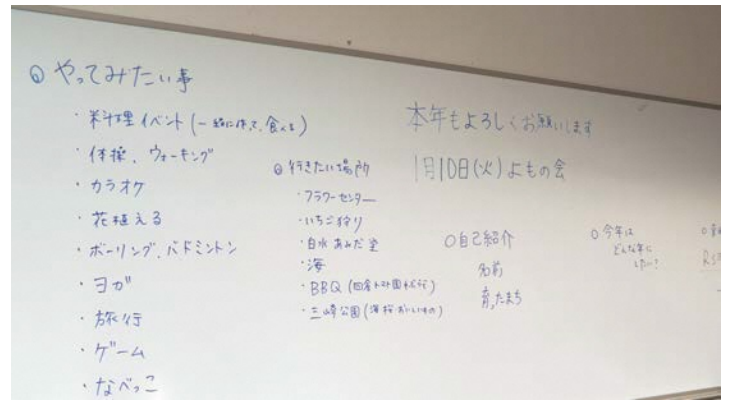 ◎ やってみたい事
・料理イベント(一緒に作って、食べる)
・体操、ウォーキング
・カラオケ
・花植える
・ボーリング、バドミントン
・ヨガ
・旅行
・ゲーム
・なべっこ
◎ 行きたい場所
・フラワーセンター
・いちご狩り
・白水あみだ堂
・海
・BBQ (四倉
・三崎公園(海 桜 おいしいもの)
本年もよろしくお願いします
1月10日(火)よもの会
○自己紹介
名前
育ったまち
○今年は
どんな年に
したい?